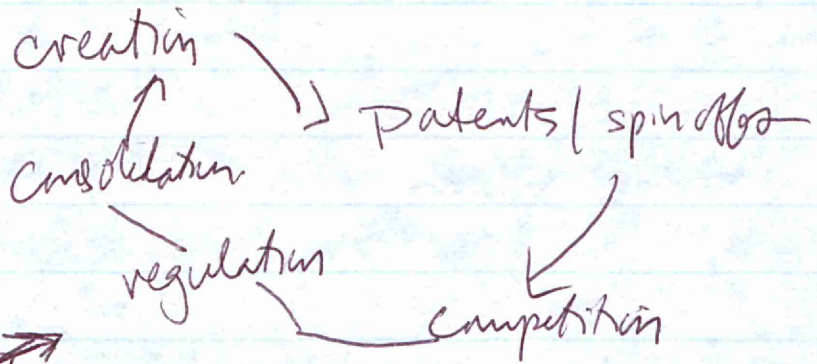 creation
patents/ spinoffs
consolidation
regulation
competition